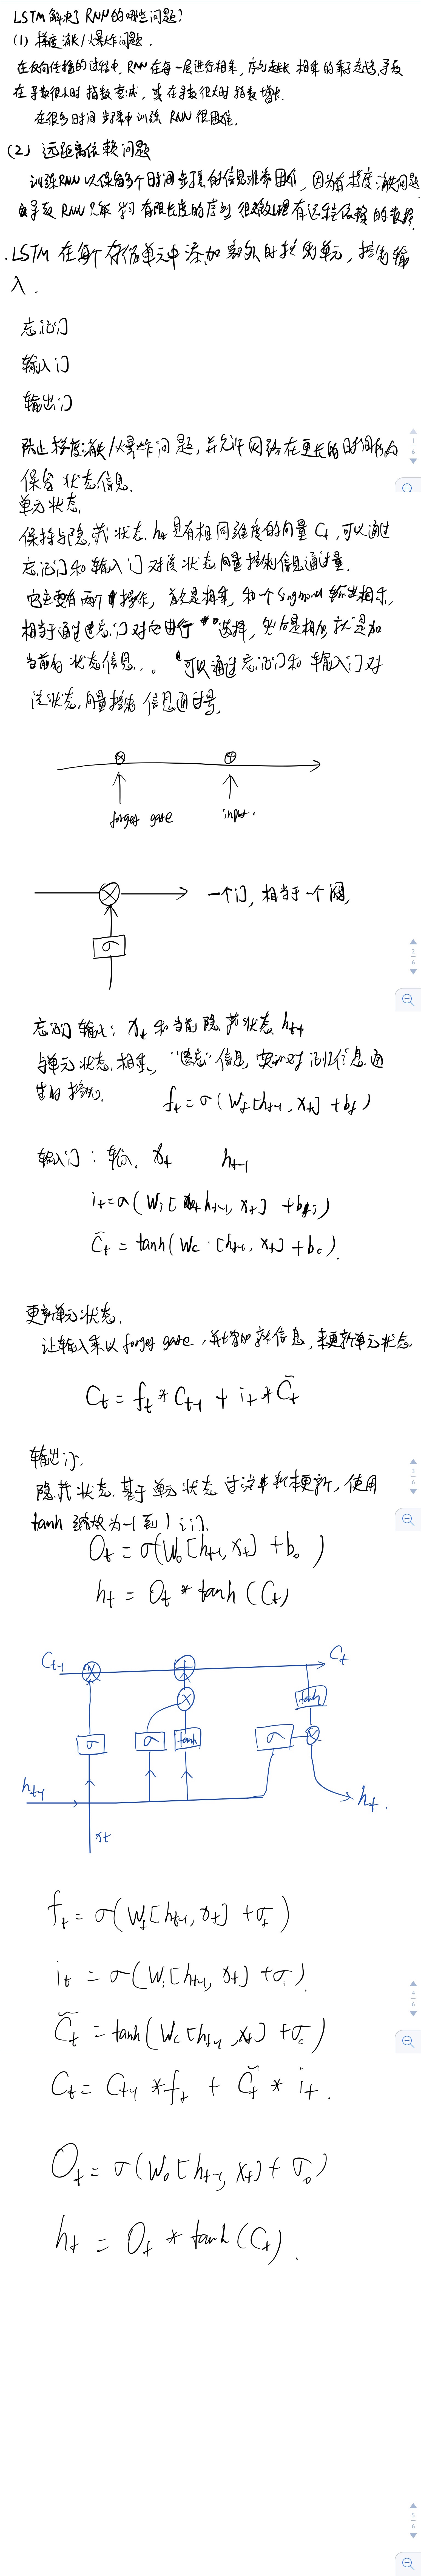 LSTM解决了RNN的哪些问题?
(1) 梯度消失/爆炸问题.
在反向传播的过程中, RNN在每一层进行相乘, 序列越长 相乘的累子越多, 导致
在导数很小时指数衰减, 或在导数很大时指数增长.
在很多时间步骤中训练RNN很困难.
(2) 远距离依赖问题
训练RNN以保留多个时间步骤的信息非常困难, 因为有梯度消失问题
导致RNN只能学习有限长度的序列 很难处理有远程依赖的数据.
.LSTM在每个存储单元中添加额外的控制单元, 控制输
入.
忘记门
输入门
输出门
防止梯度消失/爆炸问题, 并允许网络在更长的时间内
保留状态信息.
单元状态.
保持与隐藏状态 ht 具有相同维度的向量 Ct, 可以通过
忘记门和输入门对该状态向量控制信息通过量.
它主要有两个操作, 首先是相乘, 和一个sigmoid输出相乘,
相当于通过遗忘门对它进行选择, 然后是相加就是加
当前的状态信息,。可以通过忘记门和输入门对
该状态向量控制信息通过量.
⊗ ⊕
forget gate input.
⊗ 一个门, 相当于一个阀,
σ
忘记门 输入: xt 和当前隐藏状态 ht-1
与单元状态相乘, “遗忘”信息, 实现对记忆信息通
过的控制. ft = σ(Wf[ht-1, xt] + bf)
输入门: 输入 xt ht-1
it = σ(Wi[ht-1, xt] + bi)
C̃t = tanh(Wc·[ht-1, xt] + bc).
更新单元状态.
让输入乘以forget gate, 并增加新信息, 来更新单元状态.
Ct = ft * Ct-1 + it * C̃t
输出门.
隐藏状态基于单元状态过滤来更新, 使用
tanh缩放为-1到1之间.
Ot = σ(Wo[ht-1, xt] + bo)
ht = Ot * tanh(Ct)
Ct-1 ⊗ ⊕ Ct
⊗ tanh
σ σ tanh σ ⊗
ht-1 ht.
xt
ft = σ(Wf[ht-1, xt] + σf)
it = σ(Wi[ht-1, xt] + σi).
C̃t = tanh(Wc[ht-1, xt] + σc)
Ct = Ct-1 * ft + C̃t * it.
Ot = σ(Wo[ht-1, xt] + σo)
ht = Ot * tanh(Ct).